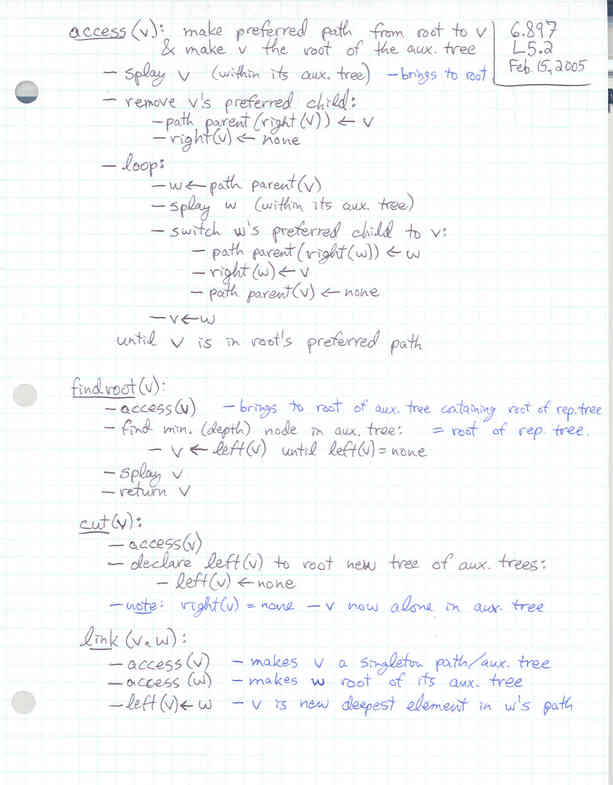 access(v): make preferred path from root to v
& make v the root of the aux. tree
6.897
L5.2
Feb. 15, 2005
— splay v (within its aux. tree) — brings to root
— remove v's preferred child:
— path parent(right(v)) ← v
— right(v) ← none
— loop:
— w ← path parent(v)
— splay w (within its aux. tree)
— switch w's preferred child to v:
— path parent(right(w)) ← w
— right(w) ← v
— path parent(v) ← none
— v ← w
until v is in root's preferred path
findroot(v):
— access(v) — brings to root of aux. tree containing root of rep. tree
— find min. (depth) node in aux. tree: = root of rep. tree.
— v ← left(v) until left(v) = none
— splay v
— return v
cut(v):
— access(v)
— declare left(v) to root new tree of aux. trees:
— left(v) ← none
— note: right(v) = none — v now alone in aux. tree
link(v, w):
— access(v) — makes v a singleton path/aux. tree
— access(w) — makes w root of its aux. tree
— left(v) ← w — v is new deepest element in w's path